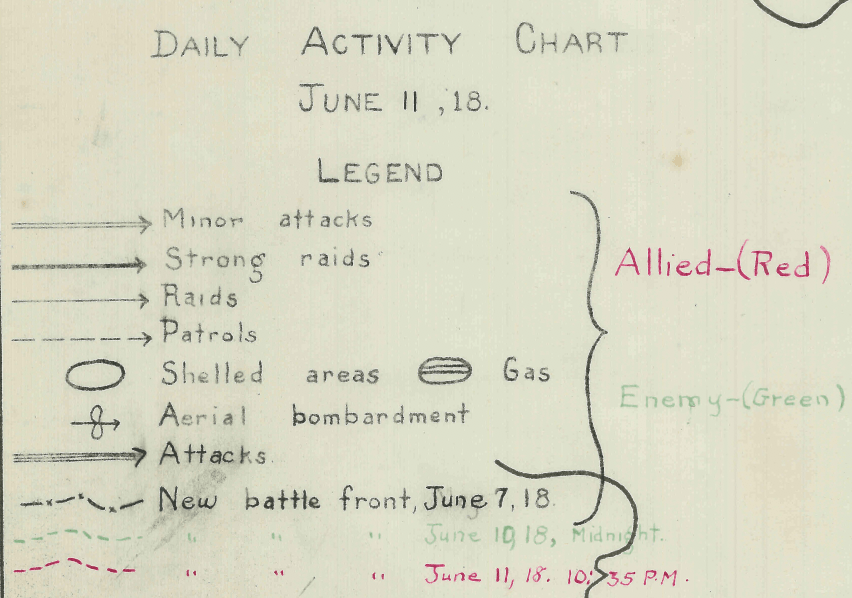 DAILY ACTIVITY CHART
JUNE 11, 18.
LEGEND
Minor attacks
Strong raids
Raids
Patrols
Shelled areas Gas
Aerial bombardment
Attacks.
New battle front, June 7, 18.
" " " June 10, 18, Midnight.
" " " June 11, 18. 10:35 P.M.
Allied-(Red)
Enemy-(Green)